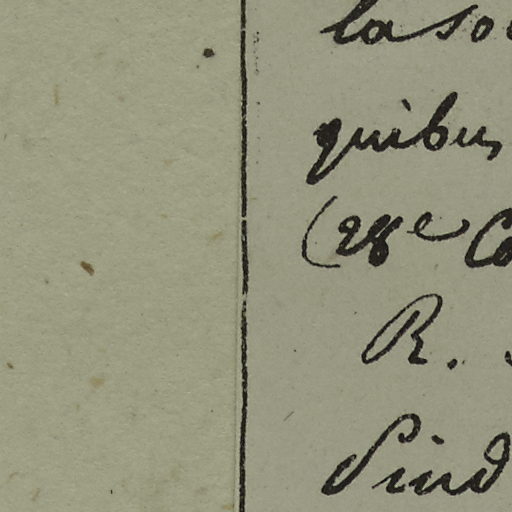 la so
quibus
(28e Co
R.
Sind